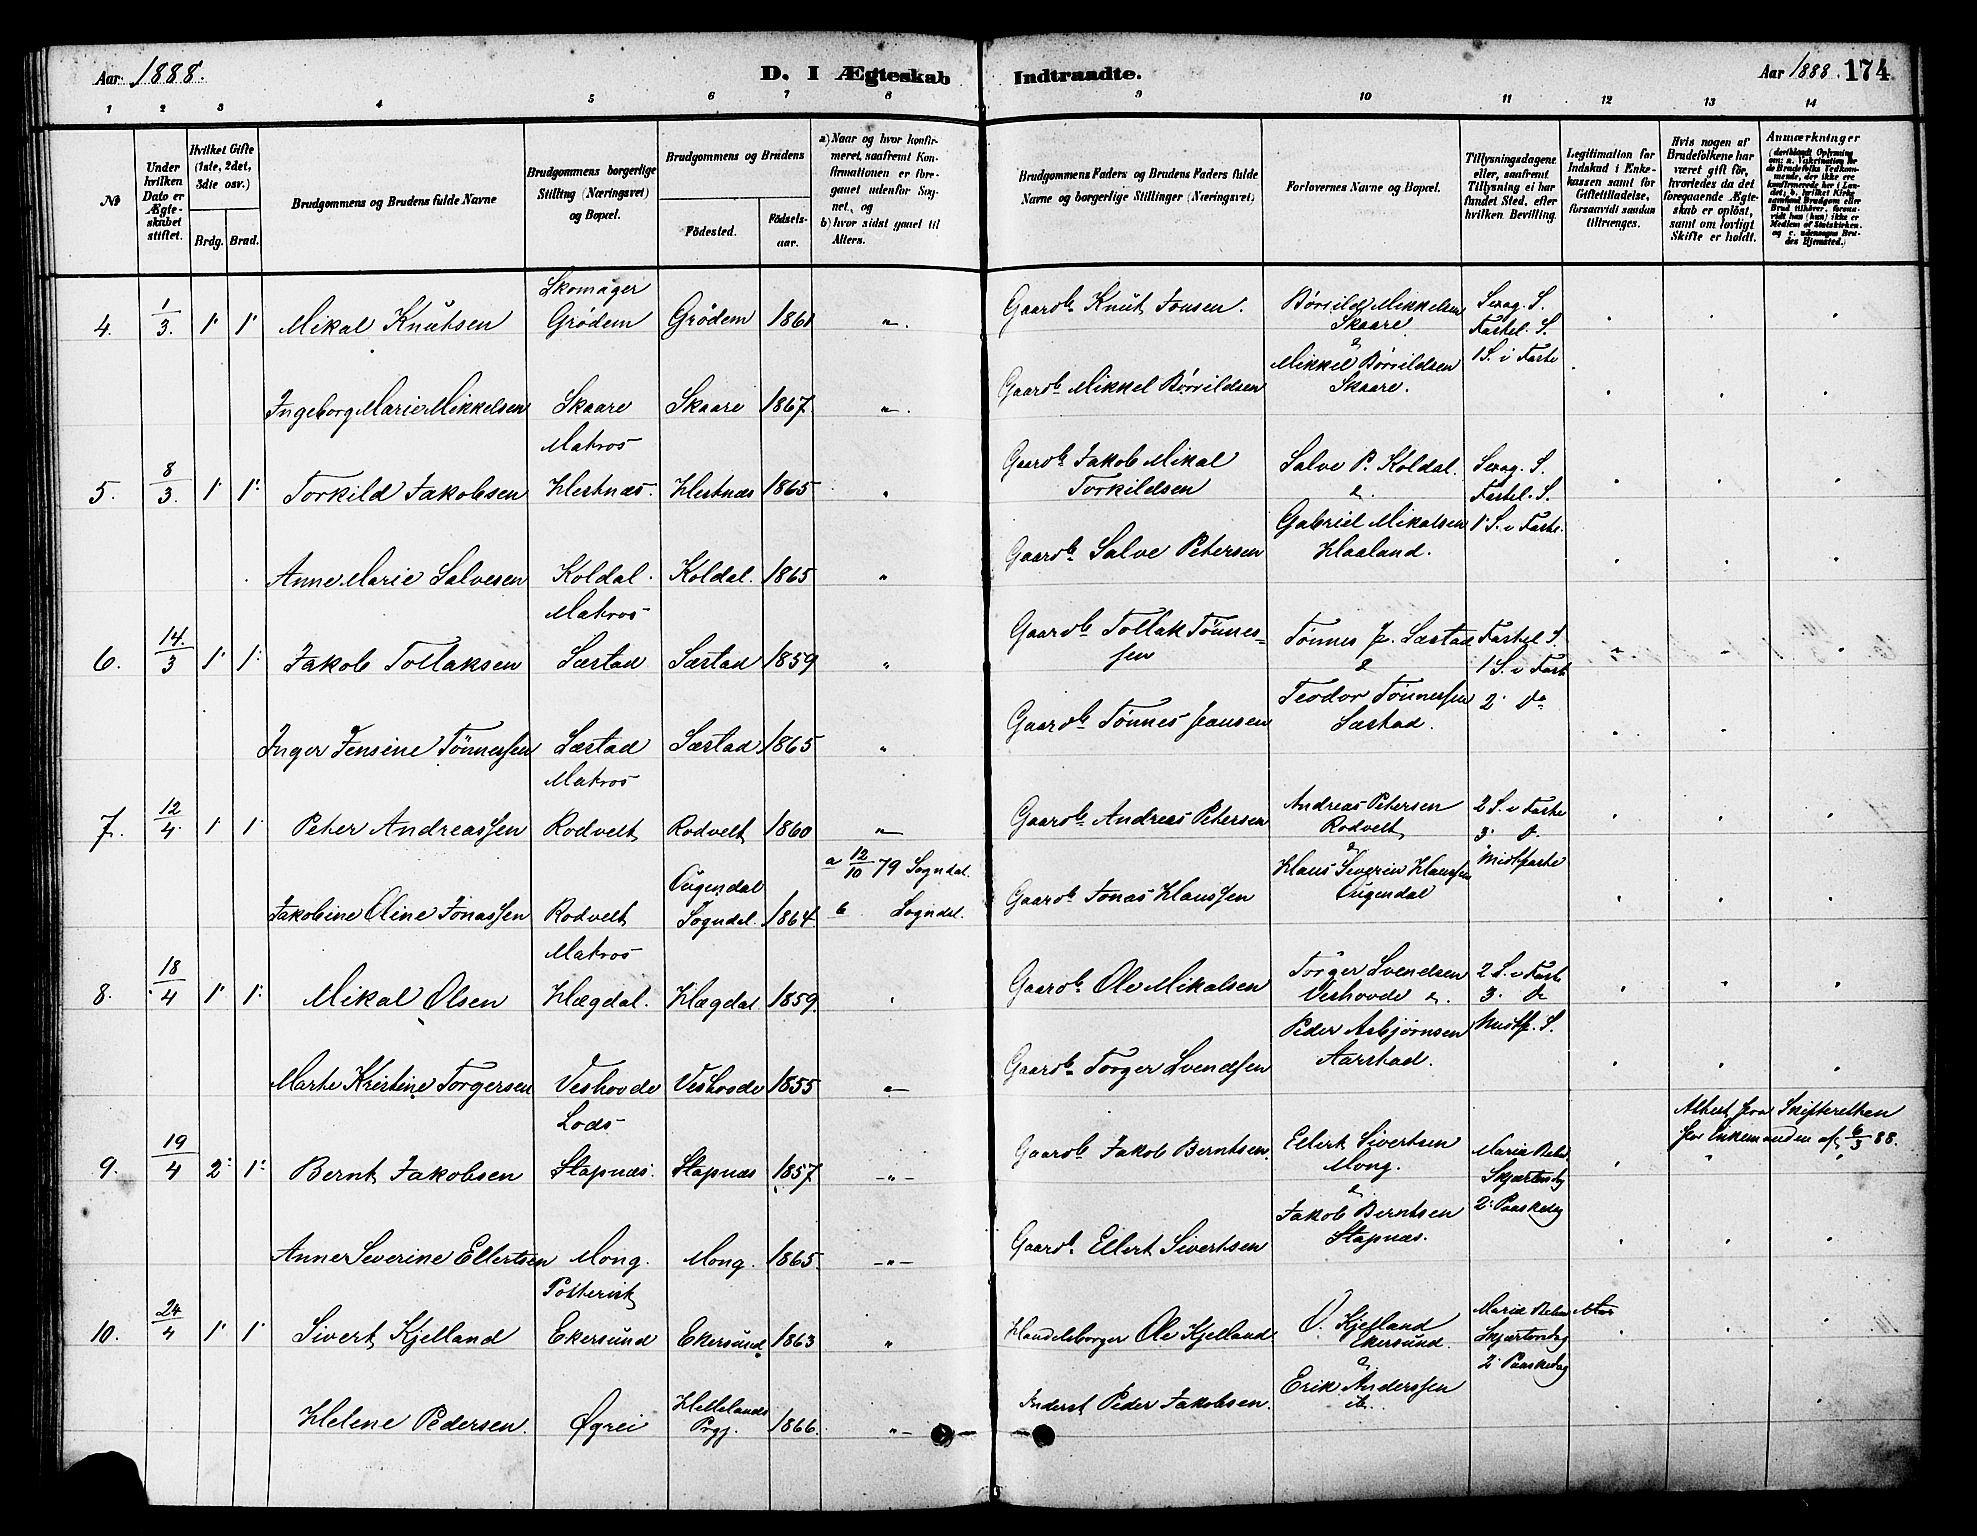 Aar 1888. D. I Ægteskab Indtraadte. Aar 1888. 174
1 2 3 4 5 6 7 8 9 10 11 12 13 14
№
Under hvilken Dato er Ægteskabet stiftet.
Hvilket Gifte (1ste, 2det, 3die osv.)
Brdg. Brud.
Brudgommens og Brudens fulde Navne
Brudgommens borgerlige Stilling (Næringsvei) og Bopæl.
Brudgommens og Brudens
Fødested.
Fødselsaar.
a) Naar og hvor konfirmeret, saafremt Konfirmationen er foregaaet udenfor Sognet, og
b) hvor sidst gaaet til Alters.
Brudgommens Faders og Brudens Faders fulde Navne og borgerlige Stillinger (Næringsvei)
Forlovernes Navne og Bopæl.
Tillysningsdagene eller, saafremt Tillysning ei har fundet Sted, efter hvilken Bevilling.
Legitimation for Indskud i Enkekassen samt for Giftetilladelse, forsaavidt saadan tiltrænges.
Hvis nogen af Brudefolkene har været gift før, hvorledes da det foregaaende Ægteskab er opløst, samt om lovligt Skifte er holdt.
Anmærkninger
(deriblandt Oplysning om: a. Vakcination for de Brudefolks Vedkommende, der ikke ere konfirmerede her i Landet, b. hvilket Kirkesamfund Brudgom eller Brud tilhører, forsaavidt han (hun) ikke er Medlem af Statskirken, og c. udensogns Brudes Hjemsted.)
4. 1/3. 1. 1. Mikal Knutsen Skomager Grödem Grödem 1861 „ Gaardb. Knut Jonsen. Börsild Mikkelsen Skaare & Sexag. S. Fastel. S. 1 S. i Faste
Ingeborg Marie Mikkelsen Skaare Skaare 1867 „ Gaardb. Mikkel Börsildsen Mikkel Börsildsen Skaare.
5. 8/3. 1. 1. Torkild Jakobsen Matros Hestnæs. Hestnæs 1865 „ Gaardb. Jakob Mikal Torkildsen Salve P. Koldal. & Sexag. S. Fastel. S. 1 S. i Faste.
Anne Marie Salvesen Koldal. Koldal. 1865 „ Gaardb. Salve Petersen Gabriel Mikalsen Haaland.
6. 14/3 1. 1. Jakob Tollaksen Matros Sæstad Sæstad 1859 „ Gaardb. Tollak Tönnessen Tönnes J. Sæstad & Fastel S. 1 S. i Faste 2. do
Inger Jensine Tönnessen Sæstad Sæstad 1865 „ Gaardb. Tönnes Jansen Teodor Tönnessen Sæstad.
7. 12/4. 1. 1. Peter Andreassen Matros Rodvelt Rodvelt 1860 „ Gaardb. Andreas Petersen Andreas Petersen Rodvelt & 2 S. i Faste 3. do Midtfaste
Jakobine Oline Jonassen Rodvelt Ougendal Sogndal. 1864. a 12/10 79 Sogndal. b Sogndal. Gaardb. Jonas Klaussen Klaus Severin Klaussen Ougendal
8. 18/4 1. 1. Mikal Olsen Matros Hægdal. Hægdal 1859. „ Gaardb. Ole Mikalsen Torger Svendsen Veshovde & 2 S. i Faste 3. do Midtf. S.
Marte Kristine Torgersen Veshovde Veshovde 1855 „ Gaardb. Torger Svendsen Peder Asbjörnsen Aarstad.
9. 19/4 2. 1. Bernt Jakobsen Lods Stapnæs. Stapnæs 1857. „ Gaardb. Jakob Berntsen. Ellert Sivertsen Mong. & Maria Beb. Skjærtorsdag 2. Paaskedag Attest fra Skifteretten for Enkemanden af 6/3 88.
Anne Severine Ellertsen Mong. Mong. 1865. „ Gaardb. Ellert Sivertsen Jakob Berntsen Stapnæs.
10. 24/4 1. 1. Sivert Kjelland Ekersund Ekersund 1863 „ Handelsborger Ole Kjelland O. Kjelland Ekersund. & Maria Beb. Skjærtorsdag 2. Paaskedag
Helene Pedersen. Øgrei Hellelands Prgj. 1866. „ Inderst Peder Jakobsen. Erik Anderssen ib.